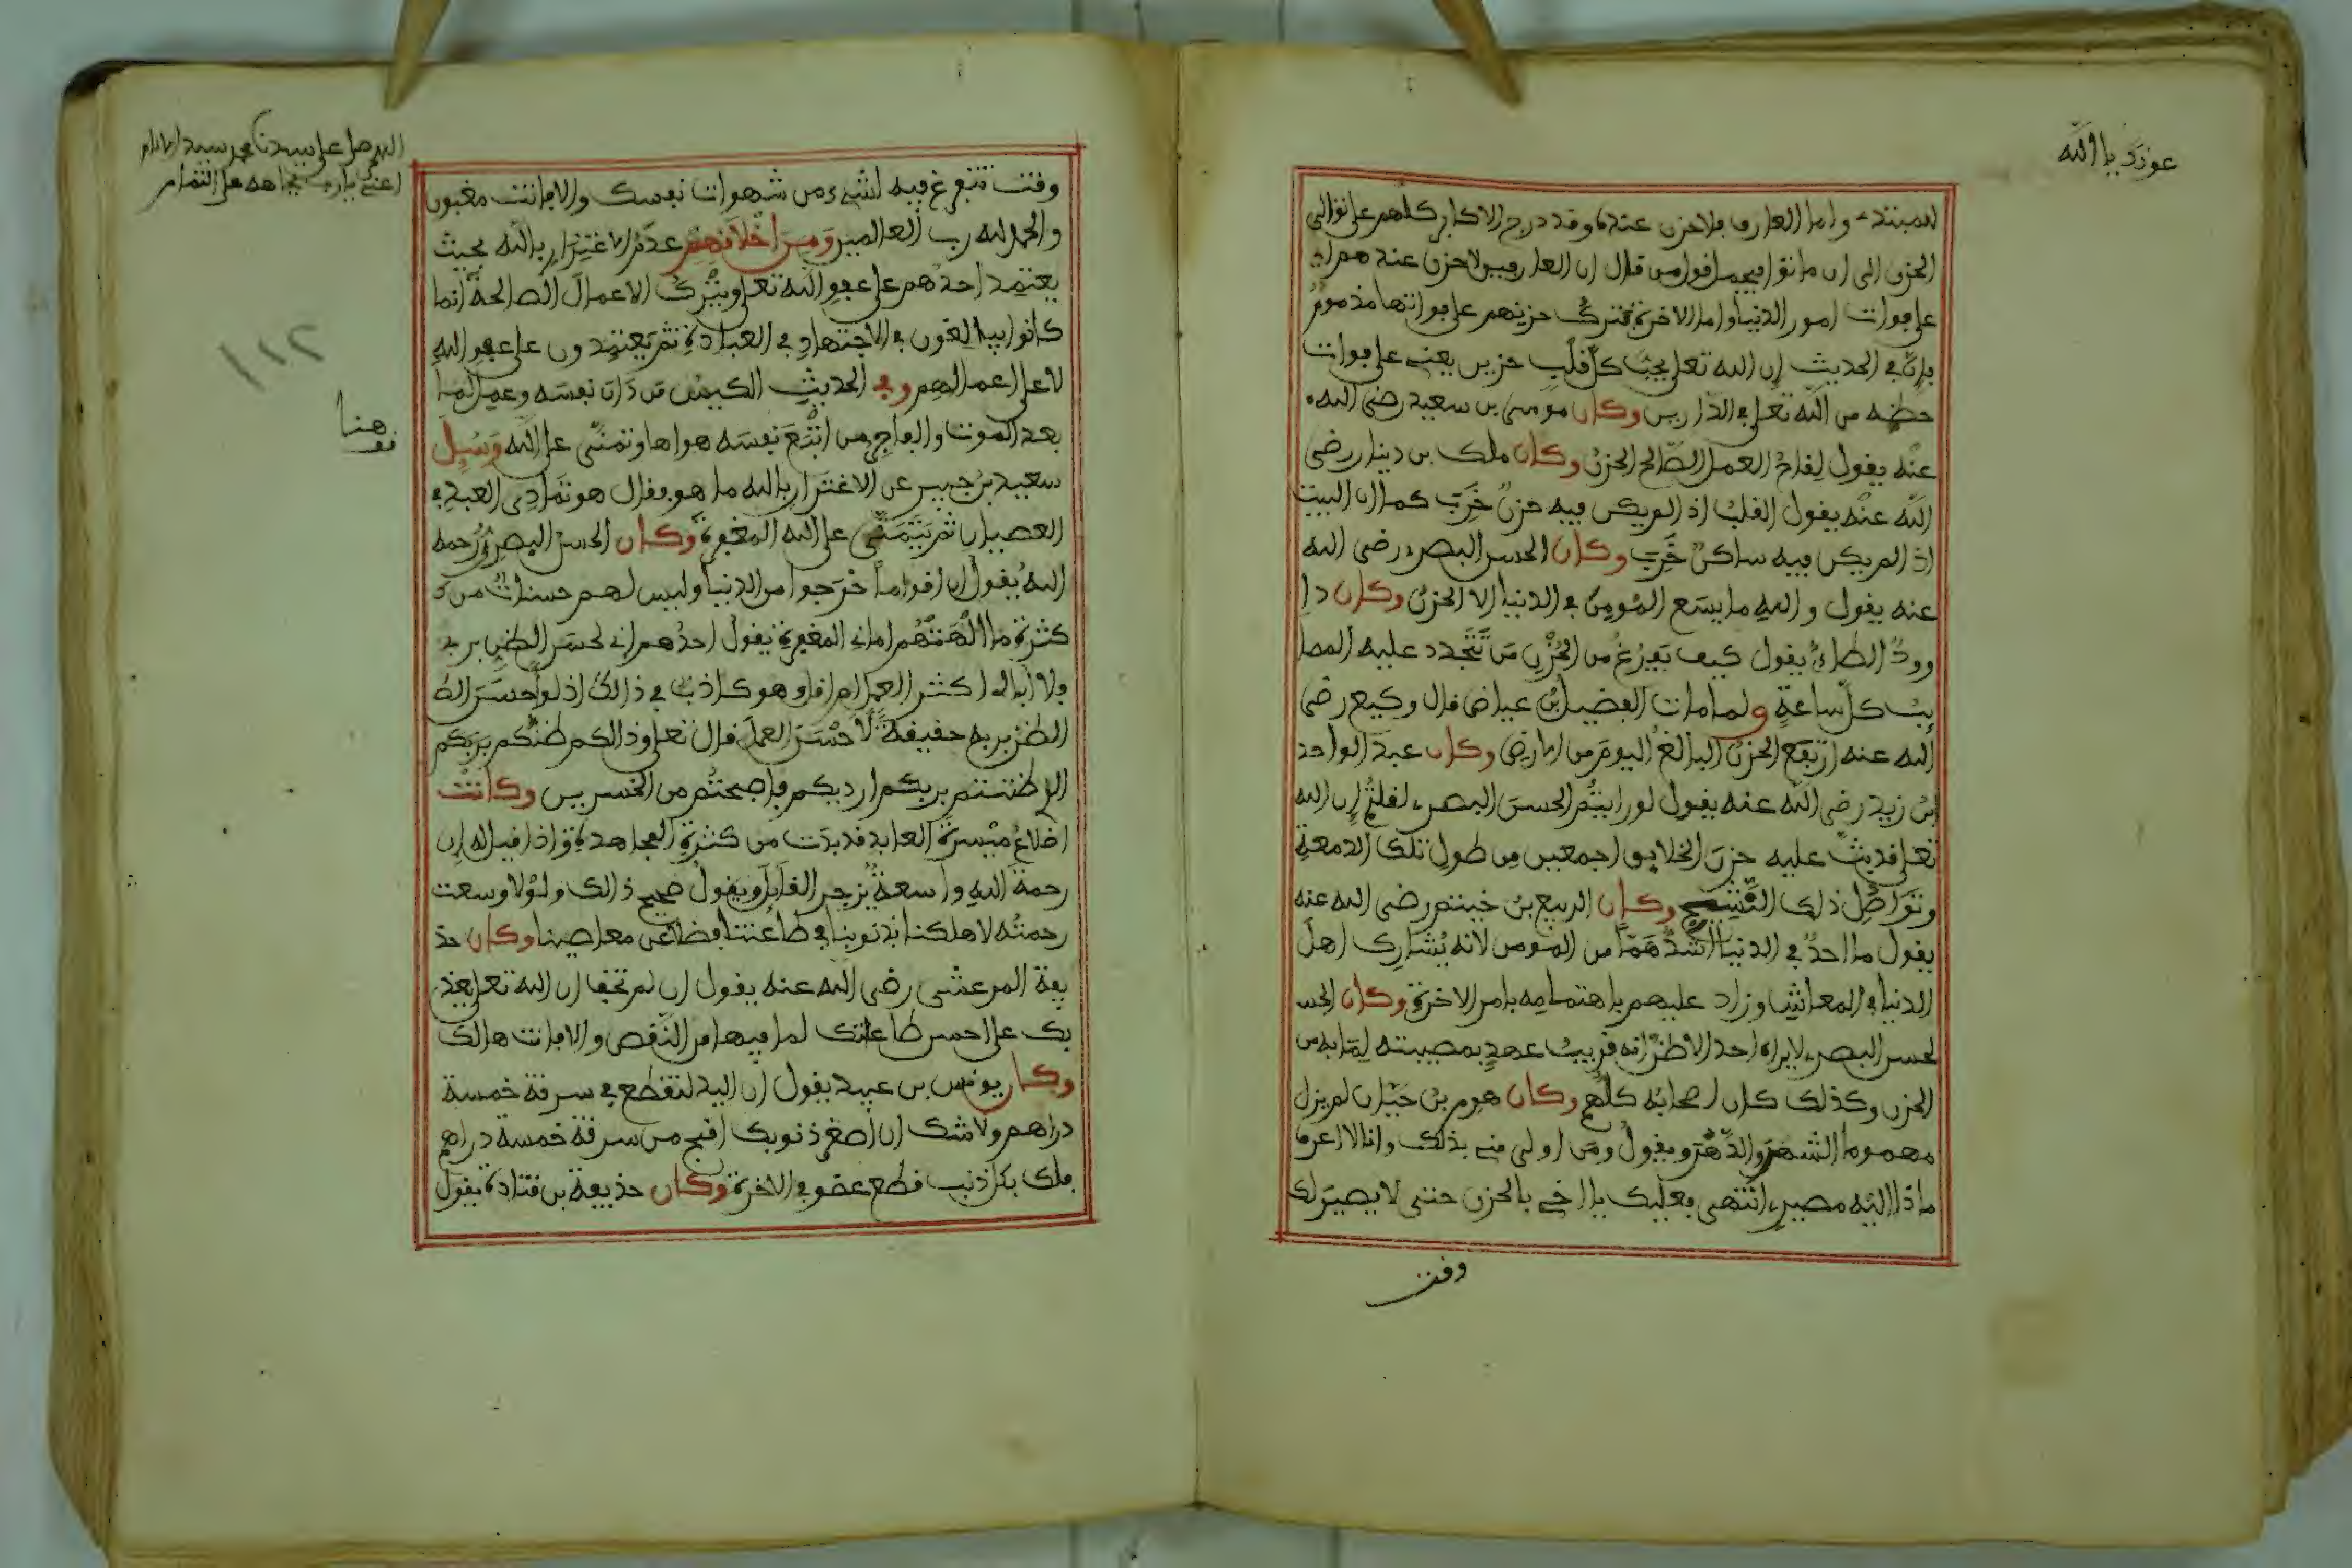 عونك يا الله
للمبتدء واما العارف فلا حزن عنده وقد درج الاكابر كلهم على توالي
الحزن الى ان ماتوا فيحمل قول من قال ان العارفين لا حزن عندهم اي
على فوات امور الدنيا واما الاخرة فترك حزنهم على فواتها مذموم
فان في الحديث ان الله تعلى يحب كل قلب حزين يعني على فوات
حظه من الله تعلى في الدارين وكان موسى بن سعيد رضي الله
عنه يقول لقاح العمل الصالح الحزن وكان ملك بن دينار رضي
الله عنه يقول القلب اذا لم يكن فيه حزن خرب كما ان البيت
اذا لم يكن فيه ساكن خرب وكان الحسن البصري رضي الله
عنه يقول والله ما يسع المومن في الدنيا الا الحزن وكان دا
وود الطاءي يقول كيف يفرغ من الحزن من تتجدد عليه المصا
يب كل ساعة ولما مات الفضيل بن عياض قال وكيع رضي
الله عنه ارتفع الحزن البالغ اليوم من الارض وكان عبد الواحد
بن زيد رضي الله عنه يقول لو رايتم الحسن البصري لقلتم ان الله
تعلى قد بث عليه حزن الخلايق اجمعين من طول تلك الدمعة
وتواصل ذلك النشيج وكان الربيع بن خيثم رضي الله عنه
يقول ما احد في الدنيا اشد هما من المومن لانه يشارك اهل
الدنيا في المعاش وزاد عليهم باهتمامه بامر الاخرة وكان الحسن
لحسن البصري لا يراه احد الا ظن انه قريب عهد بمصيبته لما به من
الحزن وكذلك كان اصحابه كلهم وكان هرم بن حيان لم يزل
مهموما الشهر والدهر ويقول ومن اولى مني بذلك وانا لا اعرف
ماذا اليه مصيري انتهى فعليك يا اخي بالحزن حتى لا يصير لك
وقت
اللهم صل على سيدنا محمد سيد الانام
اعني يا رب بجاهه على التمام
وقت تتفرغ فيه لشيء من شهوات نفسك والا فانت مغبون
والحمد لله رب العالمين ومن اخلاقهم عدم الاغترار بالله بحيث
يعتمد احدهم على عفو الله تعلى ويترك الاعمال الصالحة انما
كانوا يبالغون في الاجتهاد في العبادة ثم يعتمدون على عفو الله
لا على اعمالهم وفي الحديث الكيس من دان نفسه وعمل لما
بعد الموت والعاجز من اتبع نفسه هواها وتمنى على الله وسيل
سعيد بن جبير عن الاغترار بالله ما هو فقال هو تمادي العبد في
العصيان ثم يتمنى على الله المغفرة وكان الحسن البصري رحمه
الله يقول ان اقواما خرجوا من الدنيا وليس لهم حسنات من ك
كثرة ما الهتهم اماني المغفرة يقول احدهم اني لحسن الظن بربي
ولا ابالي اكثر العمل ام اقل وهو كاذب في ذالك اذ لو احسن الظ
الظن بربه حقيقة لاحسن العمل قال تعلى وذالكم ظنكم بربكم
الذي ظننتم بربكم ارديكم فاصبحتم من الخسرين وكانت
اضلاع ميسرة العابد قد بدت من كثرة المجاهدة واذا قيل له ان
رحمة الله واسعة يزجر القايل ويقول صحيح ذالك ولولا وسعت
رحمته لاهلكنا بذنوبنا في طاعتنا فضلا عن معاصينا وكان حذ
يفة المرعشي رضي الله عنه يقول ان لم تخف ان الله تعلى يعذ
بك على احسن طاعاتك لما فيها من النقص والا فانت هالك
وكان يونس بن عبيد يقول ان اليد لتقطع في سرقة خمسة
دراهم ولا شك ان اصغر ذنوبك اقبح من سرقة خمسة دراهم
فلك بكل ذنب قطع عضو في الاخرة وكان حذيفة بن قتادة يقول
٢١١
قف هنا